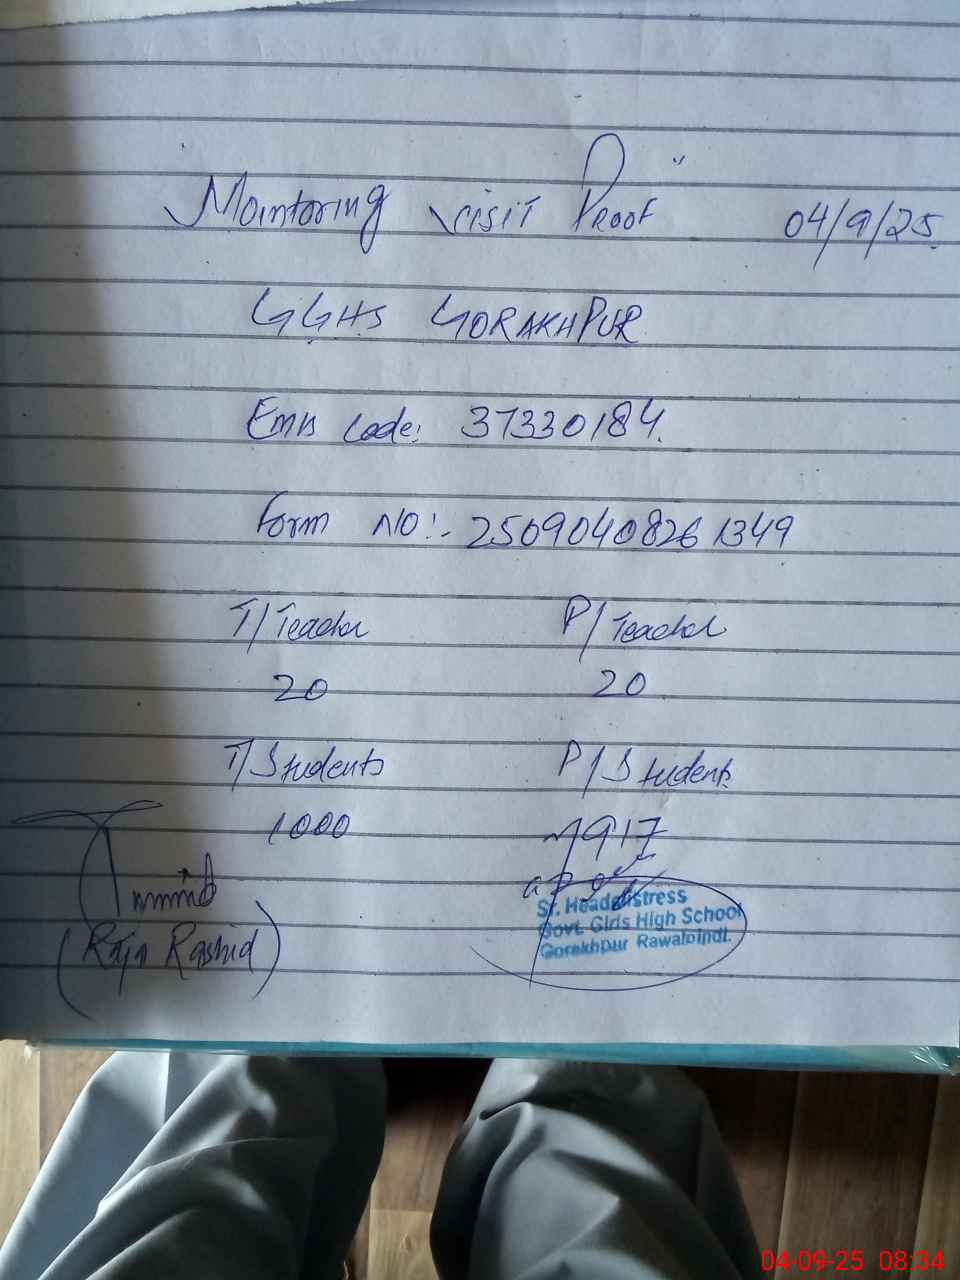 Monitoring Visit Proof 04/9/25
GGHS GORAKHPUR
Emis Code: 37330184
Form NO:- 25090408261349
T/Teacher P/Teacher
20 20
T/Students P/Students
1000 917
(Raja Rashid)
Sr. Headmistress
Govt. Girls High School
Gorakhpur Rawalpindi.
04-09-25 08:34